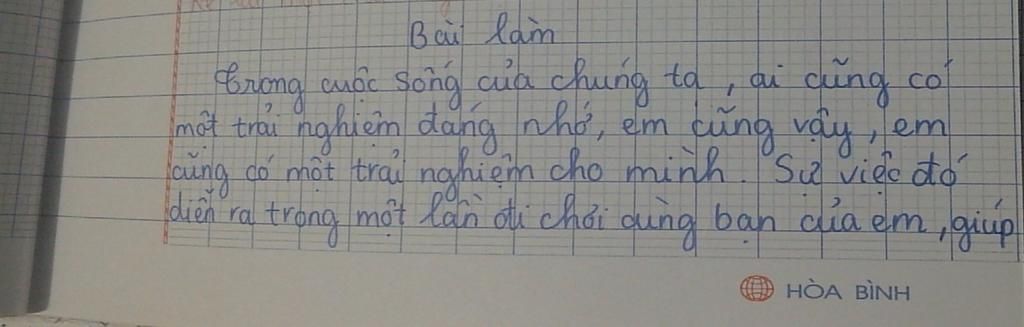 Bài làm
Trong cuộc sống của chúng ta, ai cũng có
một trải nghiệm đáng nhớ, em cũng vậy, em
cũng có một trải nghiệm cho mình. Sự việc đó
diễn ra trong một lần đi chơi cùng bạn của em, giúp
HÒA BÌNH